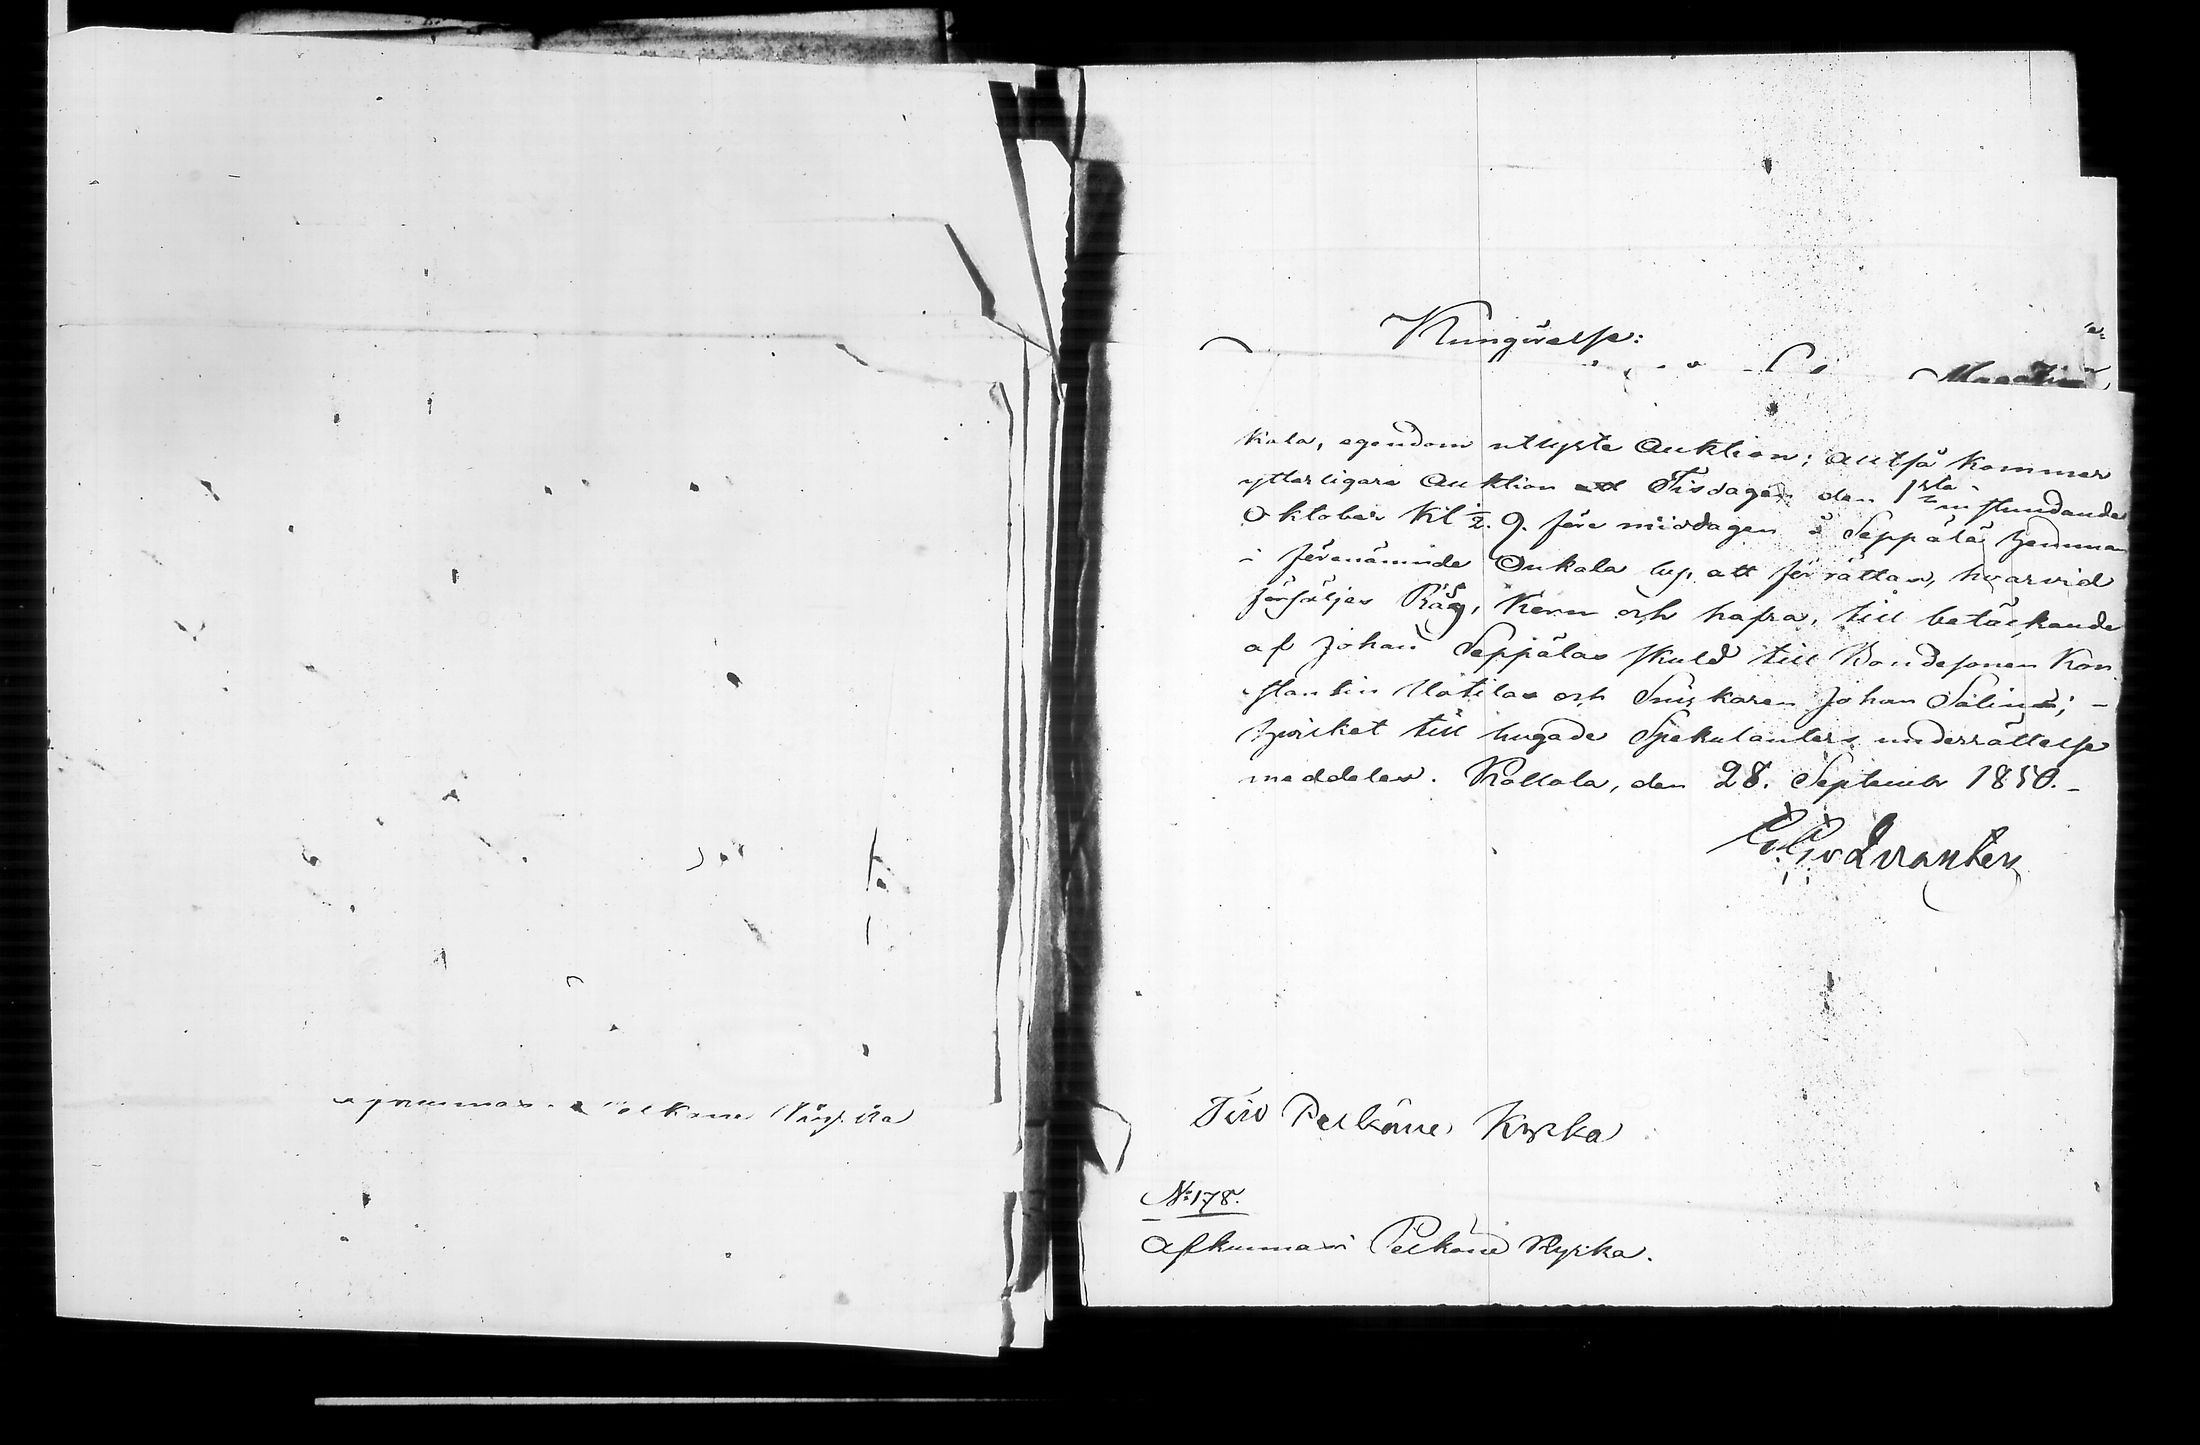 Kungörelse:
kala, egendom utlyste Auktion; alltså kommer
ytterligare Auktion Tisdagen den 1sta instundande
Oktober Kl ½ 9. före middagen å Seppälä hemman
i förenämnde Onkala by, att förrättas, hvarvid
försäljes Råg, Korn och hafra, till betäckande
af Johan Seppälas skuld till Bondesonen Kon
stantin Uotilas och Snickaren Johan Salin; -
hvilket till hugade Spekulanters underrättelse
meddelas. Kollola, den 28. September 1850. -
Till Pelkäne Kyrka
No 178.
Afkunnas i Pelkäne Kyrka.